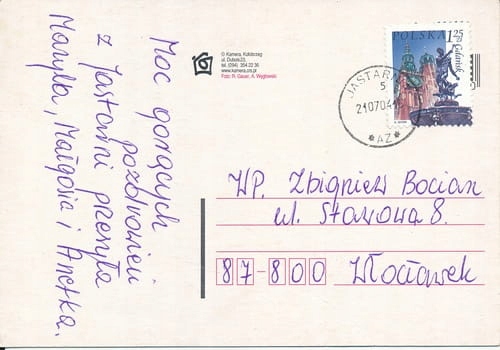 Moc gorących
pozdrowień
z Jastarni przesyła
Maryla, Małgosia i Anetka.
© Kamera, Kołobrzeg
ul. Dubois 23,
tel. (094) 354 22 36
www.kamera.crs.pl
Foto: R. Gauer, A. Węglowski
POLSKA 1,25 zł
Gdańsk
JASTARNIA
5
210704
*AZ*
WP. Zbigniew Bocian
ul. Stawowa 8.
87-800 Włocławek